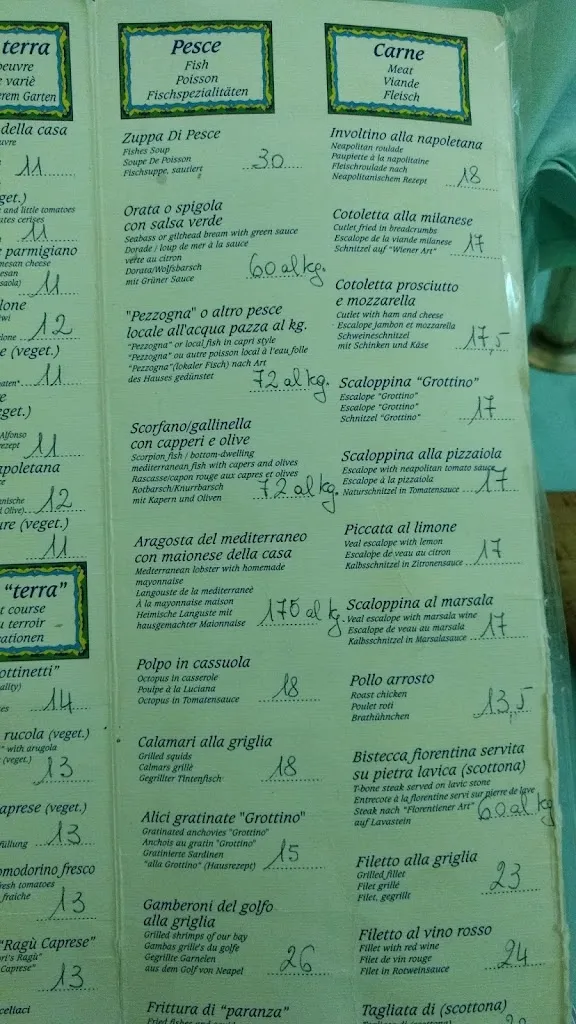 terra
oeuvre
e varié
erem Garten
della casa
uvre
11
get.)
and little tomatoes
ates cerises
11
e parmigiano
mesan cheese
esan
11
lone
12
e (veget.)
11
get.)
Alfonso
rezept
11
apoletana
nische
d Olive)
12
ure (veget.)
11
"terra"
t course
u terroir
ationen
ottinetti"
ality)
14
rucola (veget.)
" with arugola
(veget.)
13
aprese (veget.)
füllung
13
omodorino fresco
resh tomatoes
fraiche
13
"Ragù Caprese"
ori's Ragù"
Caprese"
13
celiaci
Pesce
Fish
Poisson
Fischspezialitäten
Zuppa Di Pesce
Fishes Soup
Soupe De Poisson
Fischsuppe, sautiert 30
Orata o spigola
con salsa verde
Seabass or gilthead bream with green sauce
Dorade / loup de mer à la sauce
verte au citron
Dorata/Wolfsbarsch
mit Grüner Sauce 60 al kg.
"Pezzogna" o altro pesce
locale all'acqua pazza al kg.
"Pezzogna" or local fish in capri style
"Pezzogna" ou autre poisson local à l'eau folle
"Pezzogna"(lokaler Fisch) nach Art
des Hauses gedünstet 72 al kg.
Scorfano/gallinella
con capperi e olive
Scorpion fish / bottom-dwelling
mediterranean fish with capers and olives
Rascasse/capon rouge aux capres et olives
Rotbarsch/Knurrbarsch
mit Kapern und Oliven 72 al kg.
Aragosta del mediterraneo
con maionese della casa
Mediterranean lobster with homemade
mayonnaise
Langouste de la mediterraneè
À la mayonnaise maison
Heimische Languste mit
hausgemachter Maionnaise 170 al kg.
Polpo in cassuola
Octopus in casserole
Poulpe à la Luciana
Octopus in Tomatensauce 18
Calamari alla griglia
Grilled squids
Calmars grillè
Gegrillter Tintenfisch 18
Alici gratinate "Grottino"
Gratinated anchovies "Grottino"
Anchois au gratin "Grottino"
Gratinierte Sardinen
"alla Grottino" (Hausrezept) 15
Gamberoni del golfo
alla griglia
Grilled shrimps of our bay
Gambas grille's du golfe
Gegrillte Garnelen
aus dem Golf von Neapel 26
Frittura di "paranza"
Carne
Meat
Viande
Fleisch
Involtino alla napoletana
Neapolitan roulade
Paupiette à la napolitaine
Fleischroulade nach
Neapolitanischem Rezept 18
Cotoletta alla milanese
Cutlet fried in breadcrumbs
Escalope de la viande milanese
Schnitzel auf "Wiener Art" 17
Cotoletta prosciutto
e mozzarella
Cutlet with ham and cheese
Escalope Jambon et mozzarella
Schweineschnitzel
mit Schinken und Käse 17,5
Scaloppina "Grottino"
Escalope "Grottino"
Escalope "Grottino"
Schnitzel "Grottino" 17
Scaloppina alla pizzaiola
Escalope with neapolitan tomato sauce
Escalope à la pizzaiola
Naturschnitzel in Tomatensauce 17
Piccata al limone
Veal escalope with lemon
Escalope de veau au citron
Kalbsschnitzel in Zitronensauce 17
Scaloppina al marsala
Veal escalope with marsala wine
Escalope de veau au marsala
Kalbsschnitzel in Marsalasauce 17
Pollo arrosto
Roast chicken
Poulet roti
Brathühnchen 13,5
Bistecca fiorentina servita
su pietra lavica (scottona)
T-bone steak served on lavic stone
Entrecote à la florentine servi sur pierre de lave
Steak nach "Florentiener Art"
auf Lavastein 60 al kg
Filetto alla griglia
Grilled fillet
Filet grillé
Filet, gegrillt 23
Filetto al vino rosso
Fillet with red wine
Filet de vin rouge
Filet in Rotweinsauce 24
Tagliata di (scottona)